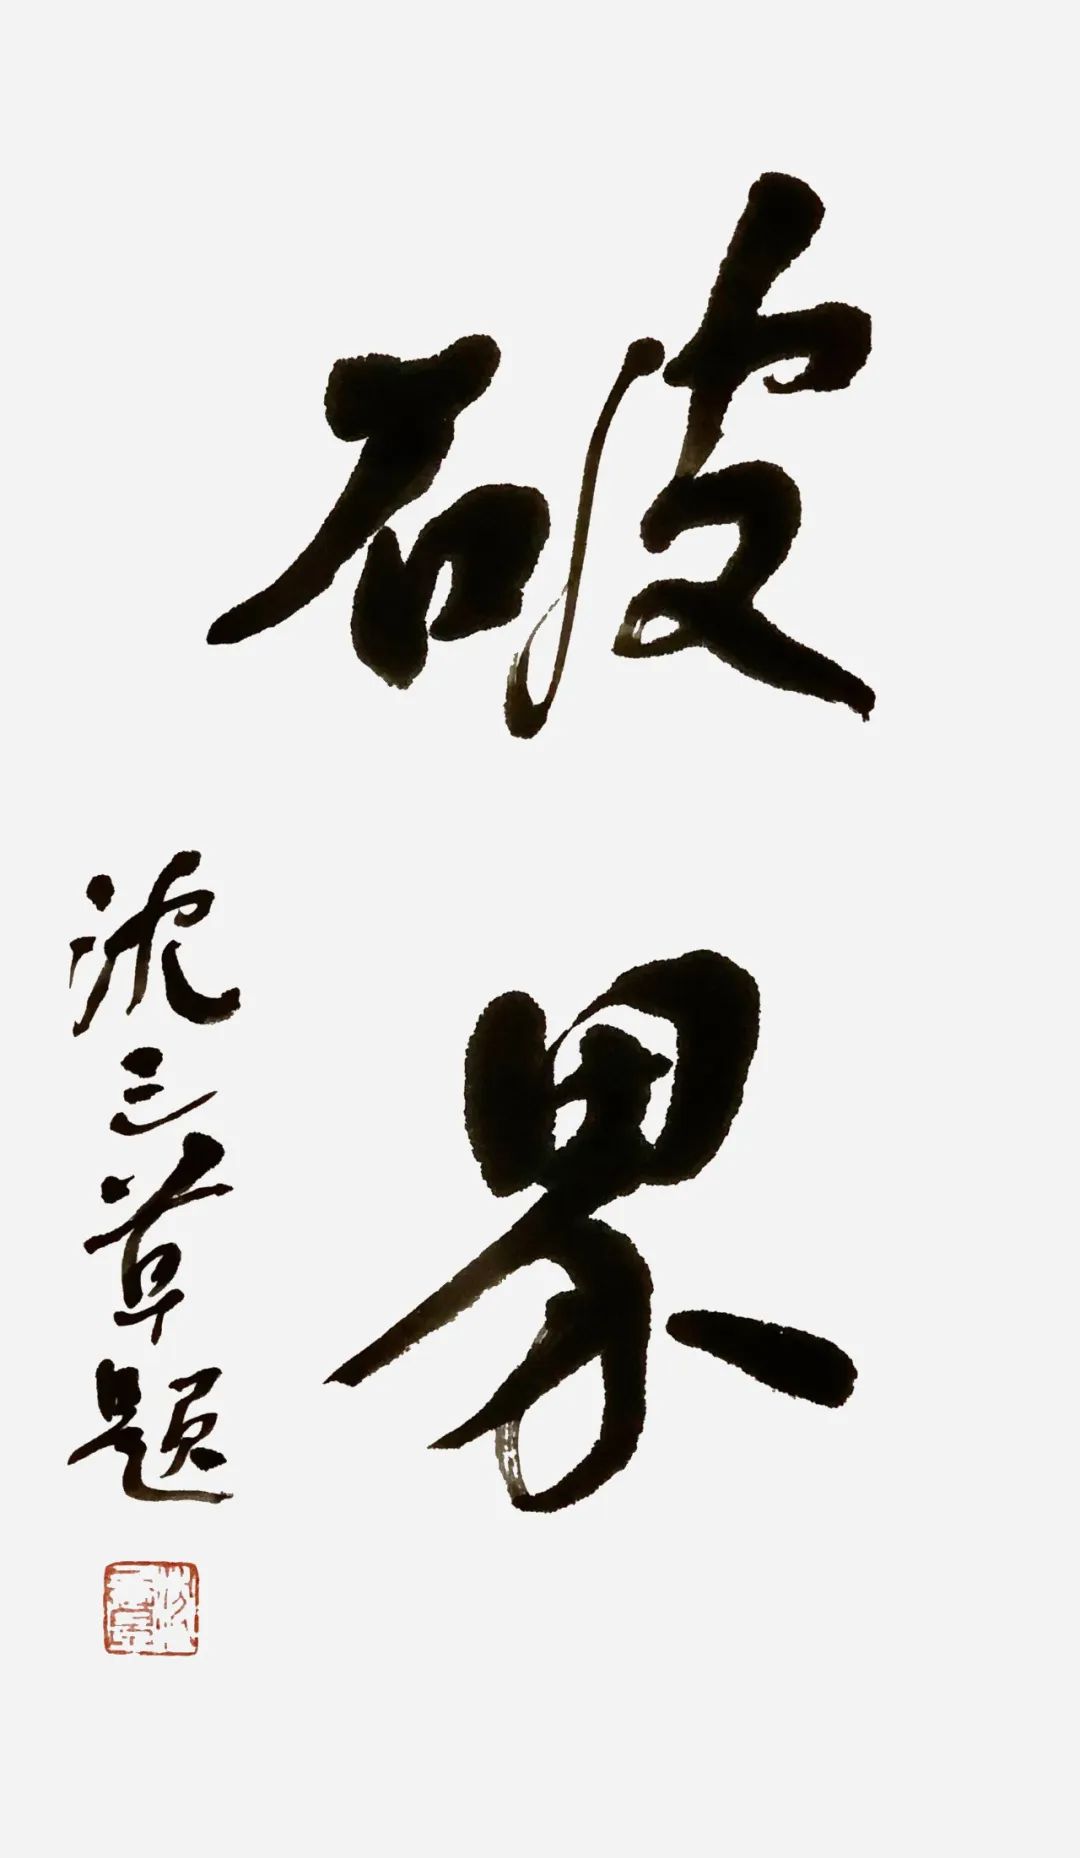 破界
沈三草题